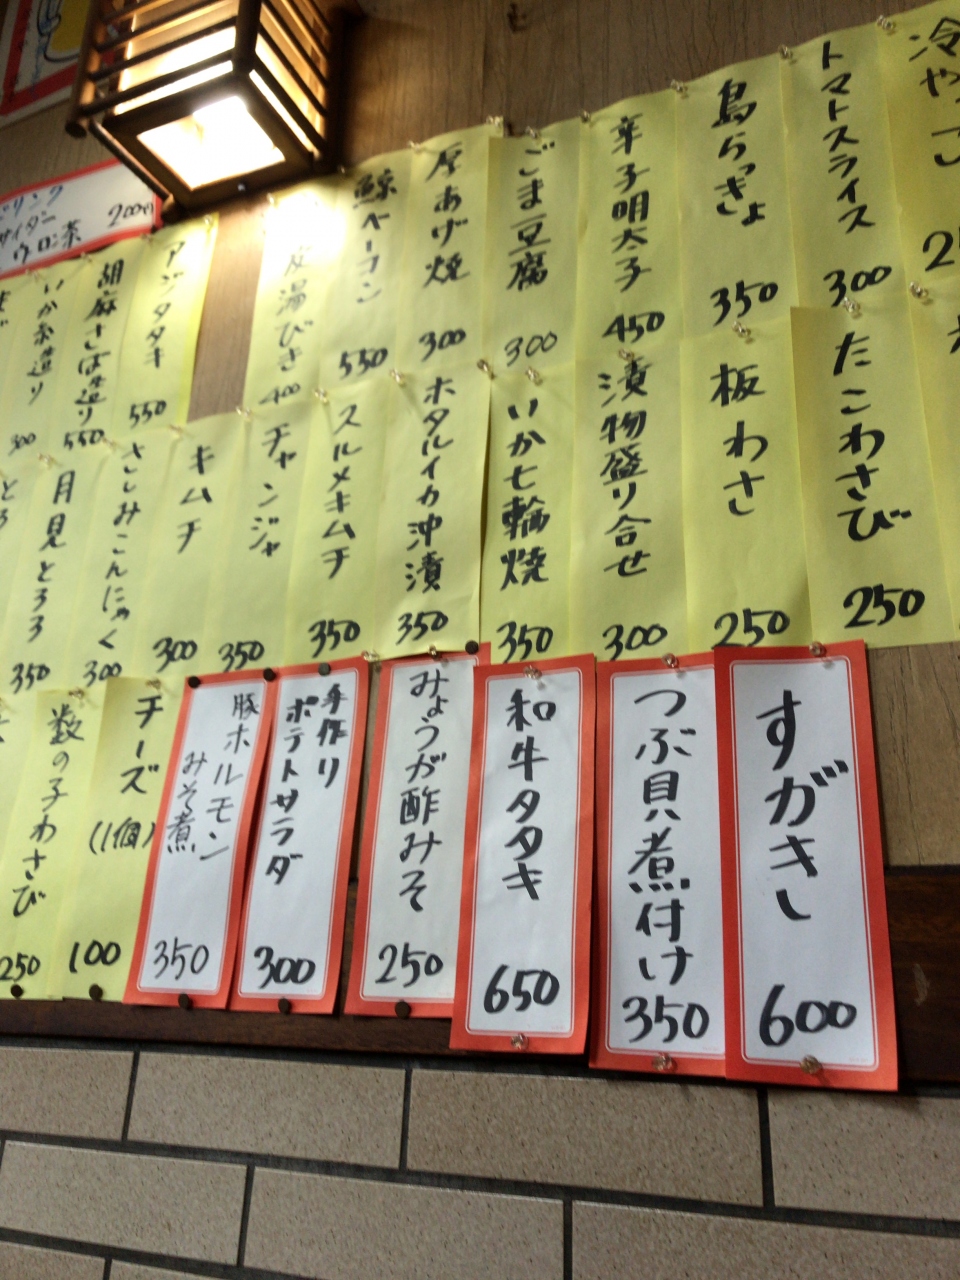 サイダー
ウーロン茶
200円
冷やっこ
トマトスライス
300
島らっきょ
350
辛子明太子
450
ごま豆腐
300
厚あげ焼
300
鯨ベーコン
550
皮湯びき
400
アジタタキ
550
胡麻さば造り
550
いか糸造り
300
たこわさび
250
板わさ
250
漬物盛り合せ
300
いか七輪焼
350
ホタルイカ沖漬
350
スルメキムチ
350
チャンジャ
350
キムチ
300
さしみこんにゃく
300
月見とろろ
350
すがきし
600
つぶ貝煮付け
350
和牛タタキ
650
みょうが酢みそ
250
手作り
ポテトサラダ
300
豚ホルモン
みそ煮
350
チーズ
(1個)
100
数の子わさび
250